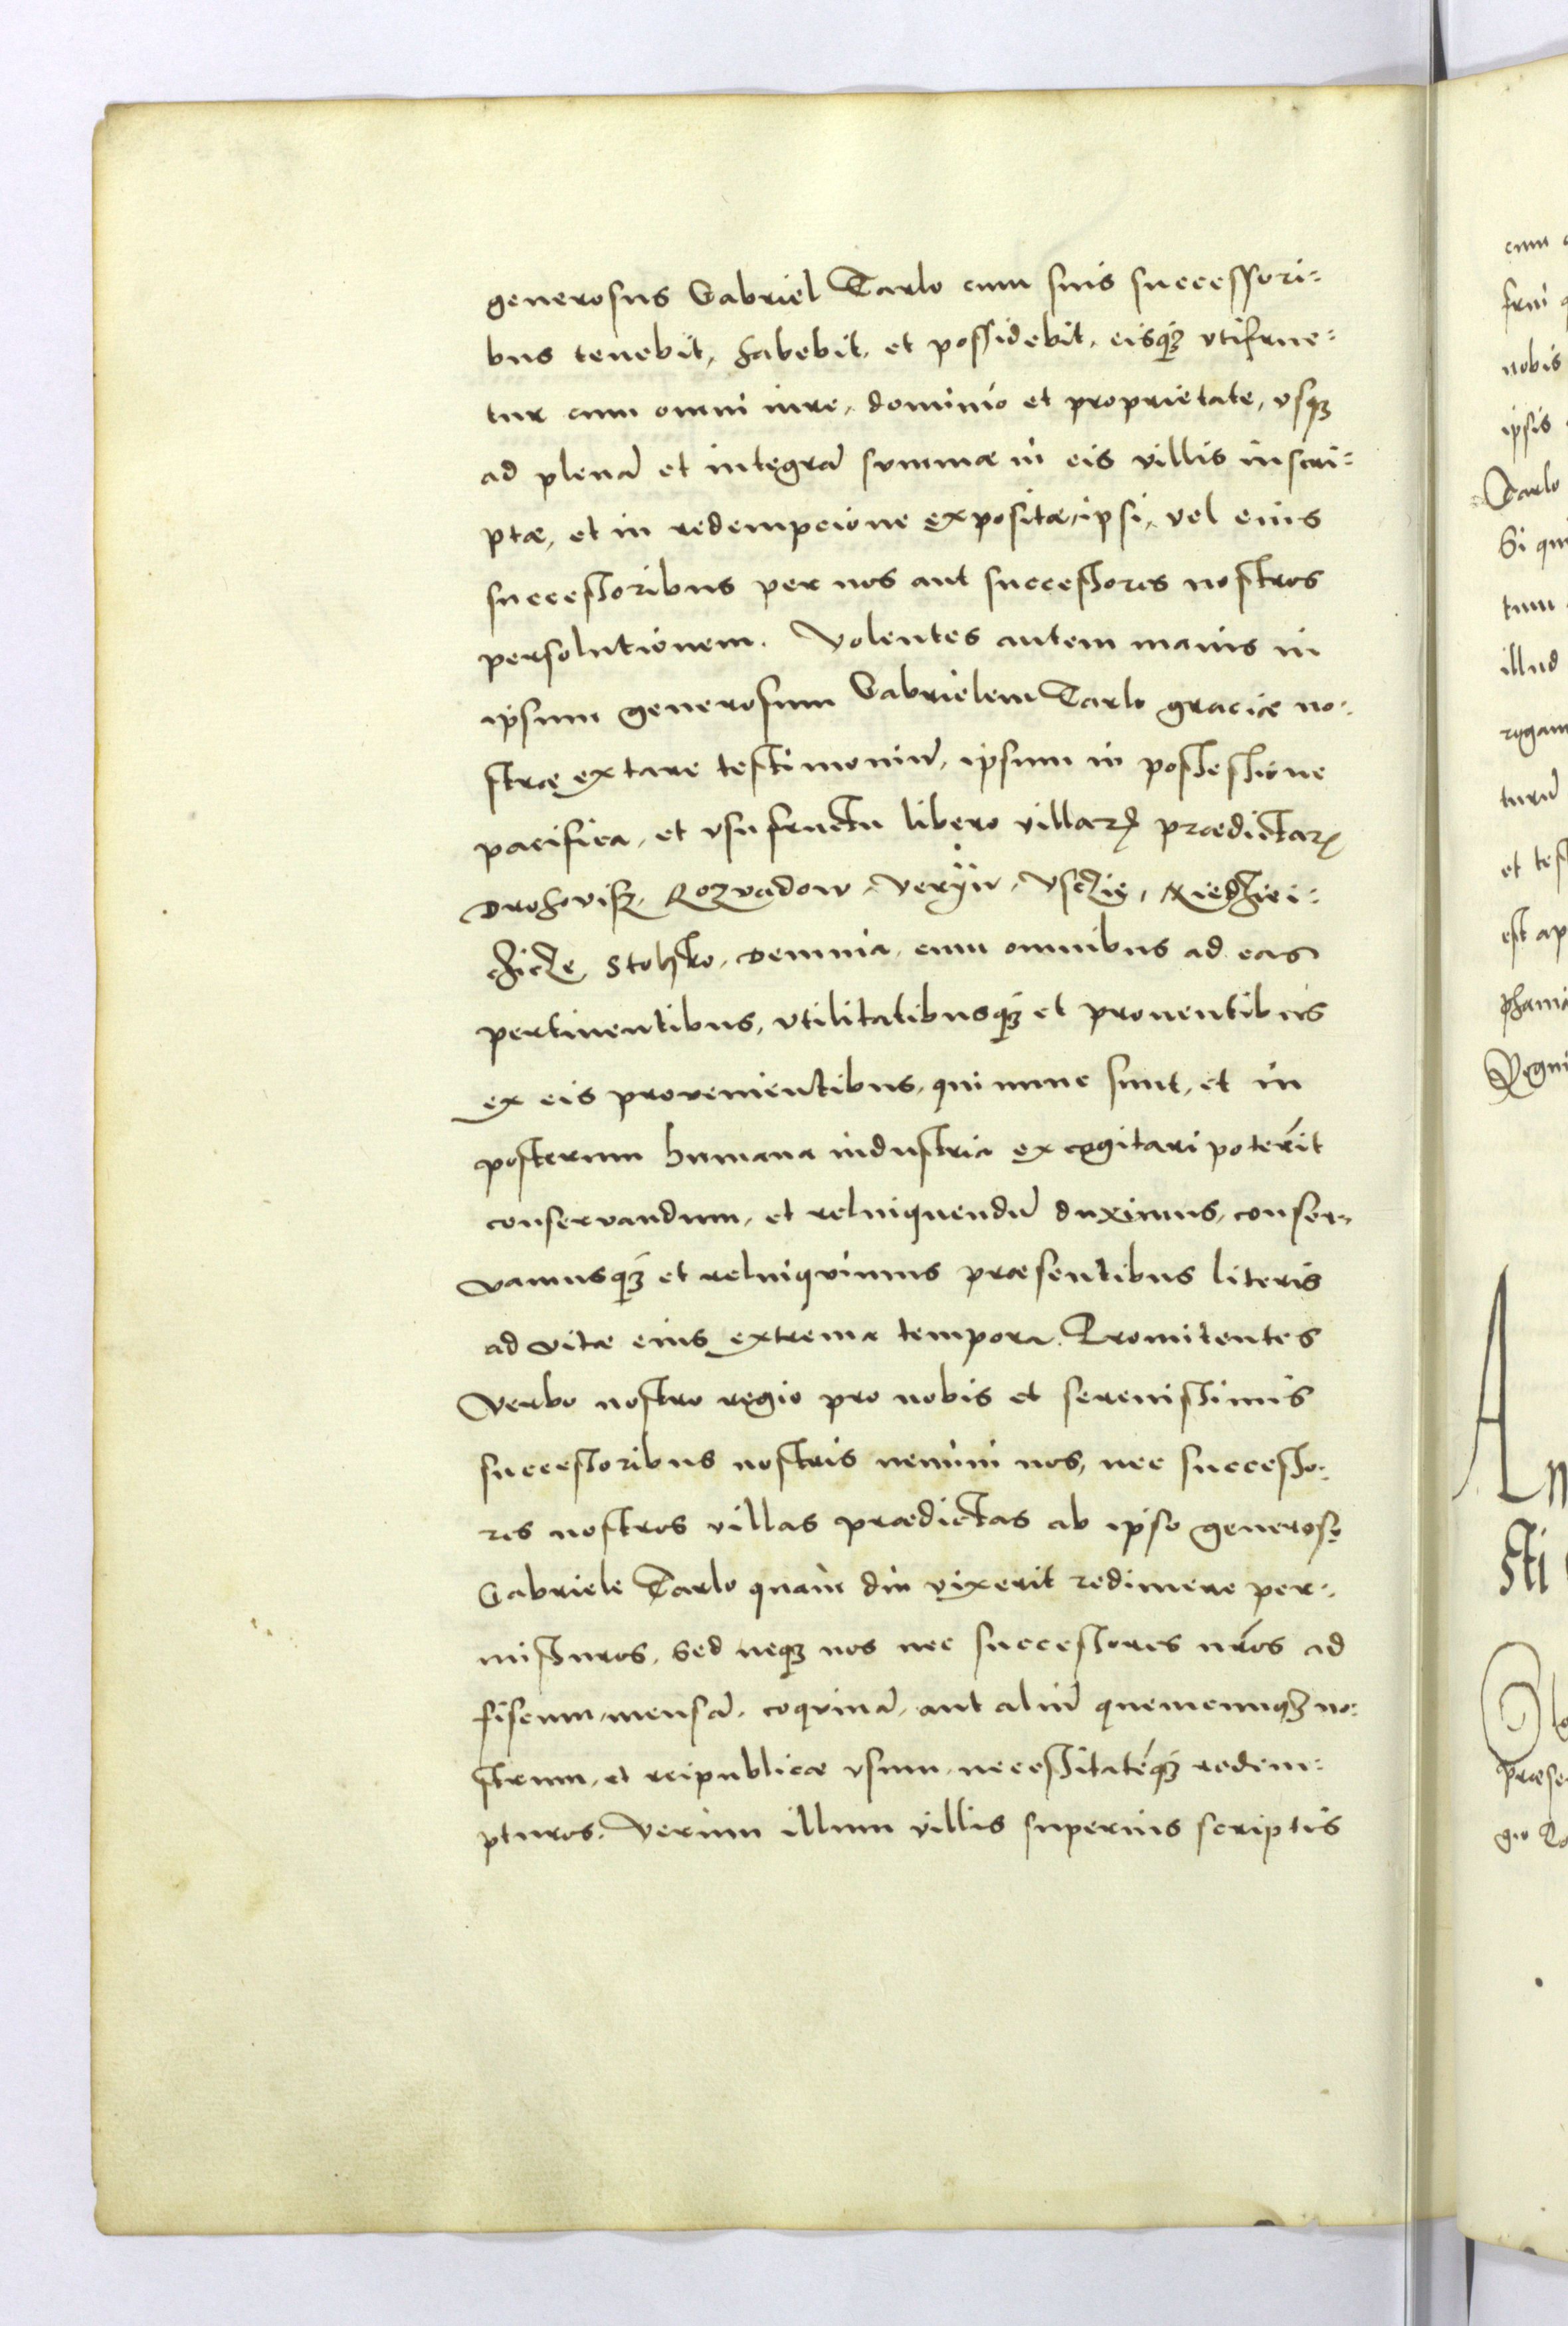 generosus Gabriel Tarlo cum suis successori=
bus tenebit, habebit, et possidebit, eisq₃ vtifrue=
tur cum omni iure, dominio et proprietate, vsq₃
ad plenā et integrā summæ in eis villis inscri=
ptæ, et in redempcione expositæ, ipsi, vel eius
successoribus per nos aut successores nostros
persolutionem. Volentes autem maius in
ipsum generosum Gabrielem Tarlo gracie no=
stræ extare testimoniū, ipsum in possessione
pacifica, et vsufructu libero villarꝝ prædictarꝝ
Drohovisz, Rozvadow, Veryn, Usczie,
Demnia, cum omnibus ad eas
pertinentibus, vtilitatibusq₃ et prouentibus
ex eis provenientibus, qui nunc sunt, et in
posterum humana industria excogitari poterīt
conservandum, et relinquendū duximus, conser=
vamusq₃ et relinquimus præsentibus literis
ad vitæ eius extrema tempora. Promitentes
Verbo nostro regio pro nobis et serenissimis
successoribus nostris nemini nos, nec successo=
res nostros villas prædictas ab ipso generoso
Gabriele Tarlo quam diu vixerit redimere per=
missuros. Sed neq₃ nos nec successores nr̄os ad
fiscum, mensā, coquinā, aut aliū quemcunq₃ no=
strum, et reipublicæ vsum, necessitatēq₃ redem=
pturos. Verum illum villis superius scriptis
cum
frui
nobis
ipsis
Tarlo
Si qu
tum
illud
rogam
turū
et tes
est ap
Regni
A
sti
præse